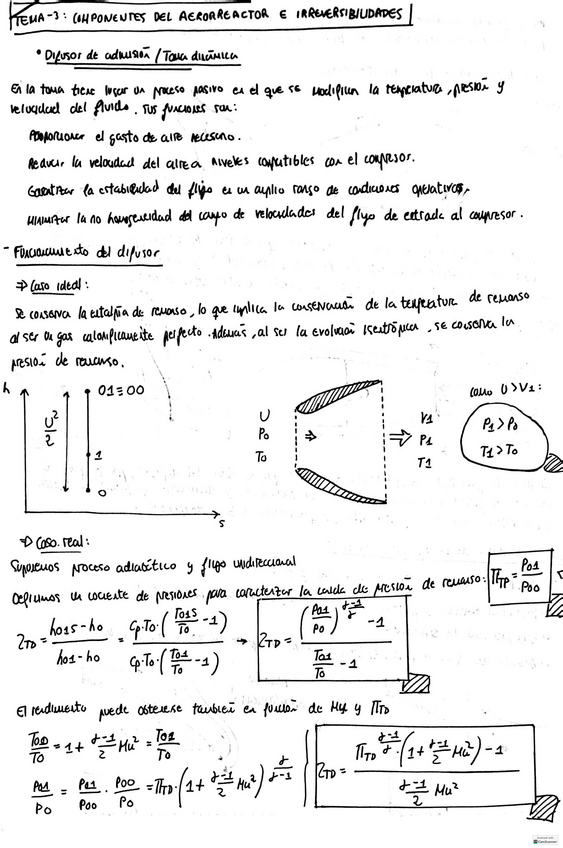 TEMA-3: COMPONENTES DEL AERORREACTOR E IRREVERSIBILIDADES
• Difusor de admisión / Toma dinámica
En la toma tiene lugar un proceso pasivo en el que se modifican la temperatura, presión y
velocidad del fluido. Sus funciones son:
Proporcionar el gasto de aire necesario.
Reducir la velocidad del aire a niveles compatibles con el compresor.
Garantizar la estabilidad del flujo en un amplio rango de condiciones operativas.
Minimizar la no homogeneidad del campo de velocidades del flujo de entrada al compresor.
- Funcionamiento del difusor
⇒ Caso ideal:
Se conserva la entalpía de remanso, lo que implica la conservación de la temperatura de remanso
al ser un gas calorificamente perfecto. Además, al ser la evolución isentrópica, se conserva la
presión de remanso.
h
01≡00
U²/2
1
0
s
U
P0
T0
⇒
⇒
V1
P1
T1
como U>V1:
P1>P0
T1>T0
⇒ Caso real:
Suponemos proceso adiabático y flujo unidireccional
Definimos un cociente de presiones para caracterizar la caída de presión de remanso: ΠTD = P01/P00
ηTD = (h01s-h0)/(h01-h0) = (Cp·T0·(T01s/T0 -1))/(Cp·T0·(T01/T0 -1)) → ηTD = ((P01/P0)^((γ-1)/γ) -1)/(T01/T0 -1)
El rendimiento puede obtenerse también en función de Mu y ΠTD
T00/T0 = 1+ (γ-1)/2 Mu² = T01/T0
P01/P0 = P01/P00 · P00/P0 = ΠTD·(1+ (γ-1)/2 Mu²)^(γ/(γ-1))
ηTD = (ΠTD^((γ-1)/γ)·(1+ (γ-1)/2 Mu²)-1)/((γ-1)/2 Mu²)
CamScanner